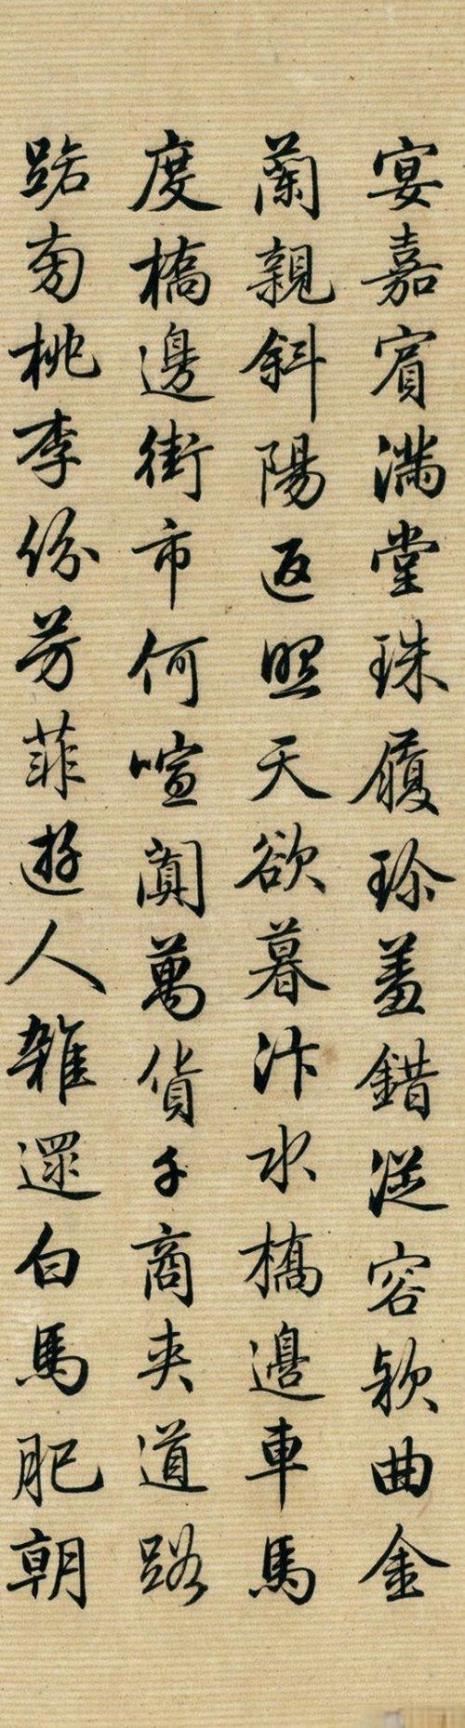 宴嘉賓滿堂珠履珍羞錯從容款曲金
蘭親斜陽返照天欲暮汴水橋邊車馬
度橋邊街市何喧闐萬貨千商夾道路
踏匋桃李份芳菲遊人雜還白馬肥朝